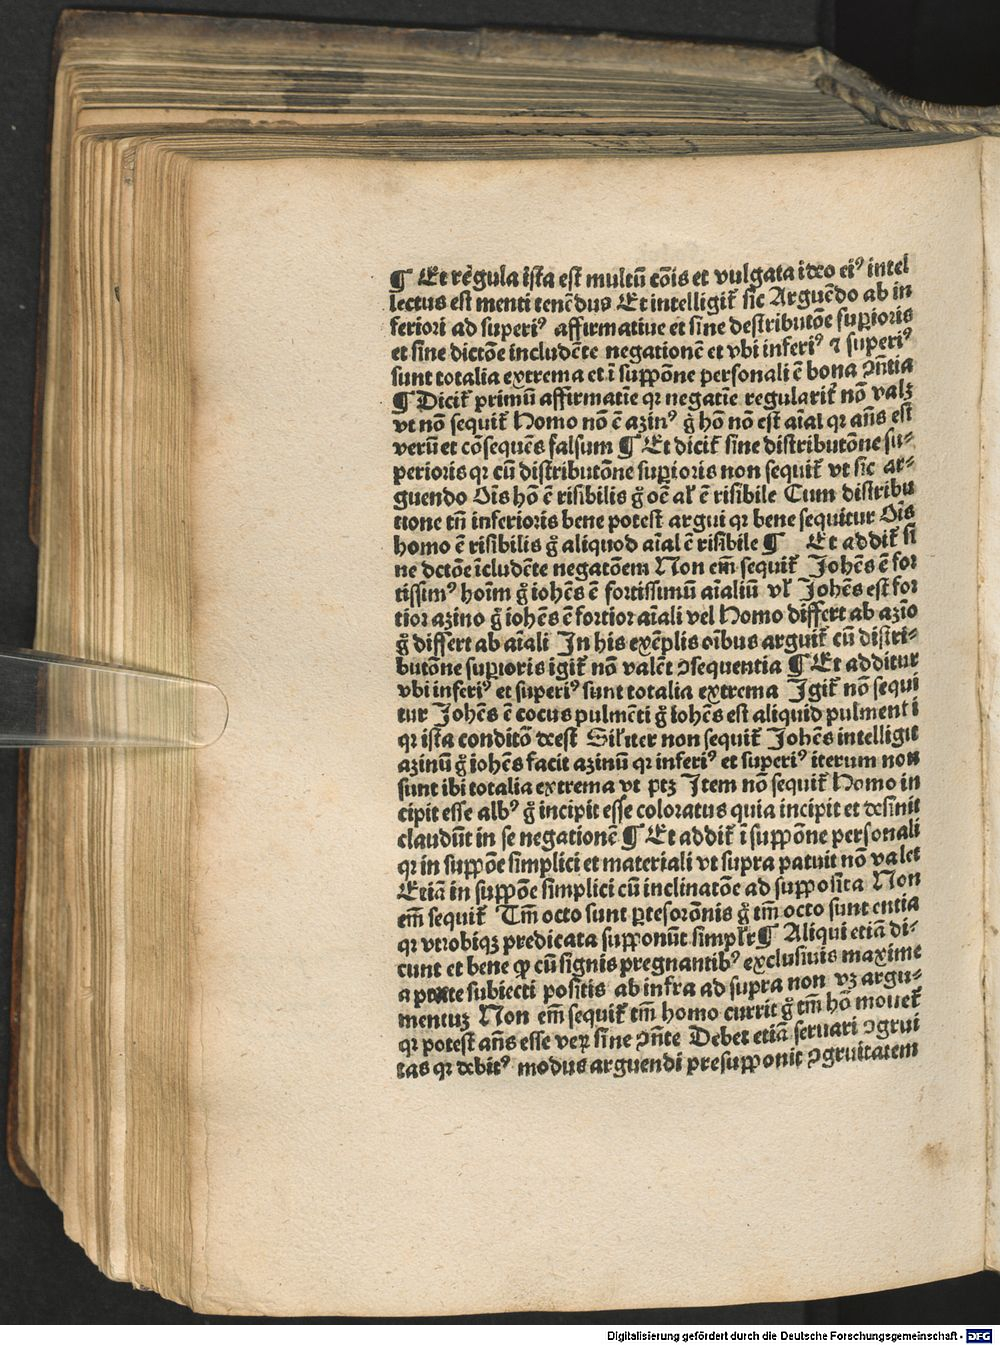 ¶ Et regula ista est multū cōis et vulgata ideo eiꝰ intel
lectus est menti tenēdus Et intelligit̄ sic Arguēdo ab in
feriori ad superiꝰ affirmatiue et sine destributōe suꝑioris
et sine dictōe includēte negationē et vbi inferiꝰ ⁊ superiꝰ
sunt totalia extrema et ī suppōne personali ē bona ↄn̄tia
¶ Dicit̄ primū affirmatīe qꝛ negatīe regularit̄ nō valꝫ
vt nō sequit̄ Homo nō ē azinꝰ g̊ hō nō est aīal qꝛ an̄s est
verū et cōsequēs falsum ¶ Et dicit̄ sine distributōne su⸗
perioris qꝛ cū distributōne suꝑioris non sequit̄ vt sic ar⸗
guendo Oīs hō ē risibilis g̊ oē al̄ ē risibile Cum distribu
tione tn̄ inferioris bene potest argui qꝛ bene sequitur Oīs
homo ē risibilis g̊ aliquod aīal ē risibile ¶ Et addit̄ si
ne dctōe īcludēte negatōem Non em̄ sequit̄ Johēs ē for
tissimꝰ hoīm g̊ iohēs ē fortissimū aīaliū vl̄ Johēs est for
tior azino g̊ iohēs ē fortior aīali vel Homo differt ab azīo
g̊ differt ab aīali In his exēplis oībus arguit̄ cū distri⸗
butōne suꝑioris igit̄ nō valēt ↄsequentia ¶ Et additur
vbi inferiꝰ et superiꝰ sunt totalia extrema Igit̄ nō sequi
tur Johēs ē cocus pulmēti g̊ iohēs est aliquid pulmenti
qꝛ ista conditō deest Sil̄iter non sequit̄ Johēs intelligit
azinū g̊ iohēs facit azinū qꝛ inferiꝰ et superiꝰ iterum non
sunt ibi totalia extrema vt ptꝫ Item nō sequit̄ Homo in
cipit esse albꝰ g̊ incipit esse coloratus quia incipit et desinit
claudūt in se negationē ¶ Et addit̄ ī suppōne personali
qꝛ in suppōe simplici et materiali vt supra patuit nō valet
Etiā in suppōe simplici cū inclinatōe ad supposita Non
em̄ sequit̄ Tm̄ octo sunt ꝑtes orōnis g̊ tm̄ octo sunt entia
qꝛ vtrobiqꝫ predicata supponūt simpl̄r ¶ Aliqui etiā di⸗
cunt et bene ꝙ cū signis pregnantibꝰ exclusiuis maxime
a parte subiecti positis ab infra ad supra non vꝫ argu⸗
mentuꝫ Non em̄ sequit̄ tm̄ homo currit g̊ tm̄ hō mouet̄
qꝛ potest an̄s esse veꝝ sine ↄn̄te Debet etiā seruari ↄgrui
tas qꝛ debitꝰ modus arguendi presupponit ↄgruitatem
Digitalisierung gefördert durch die Deutsche Forschungsgemeinschaft - DFG